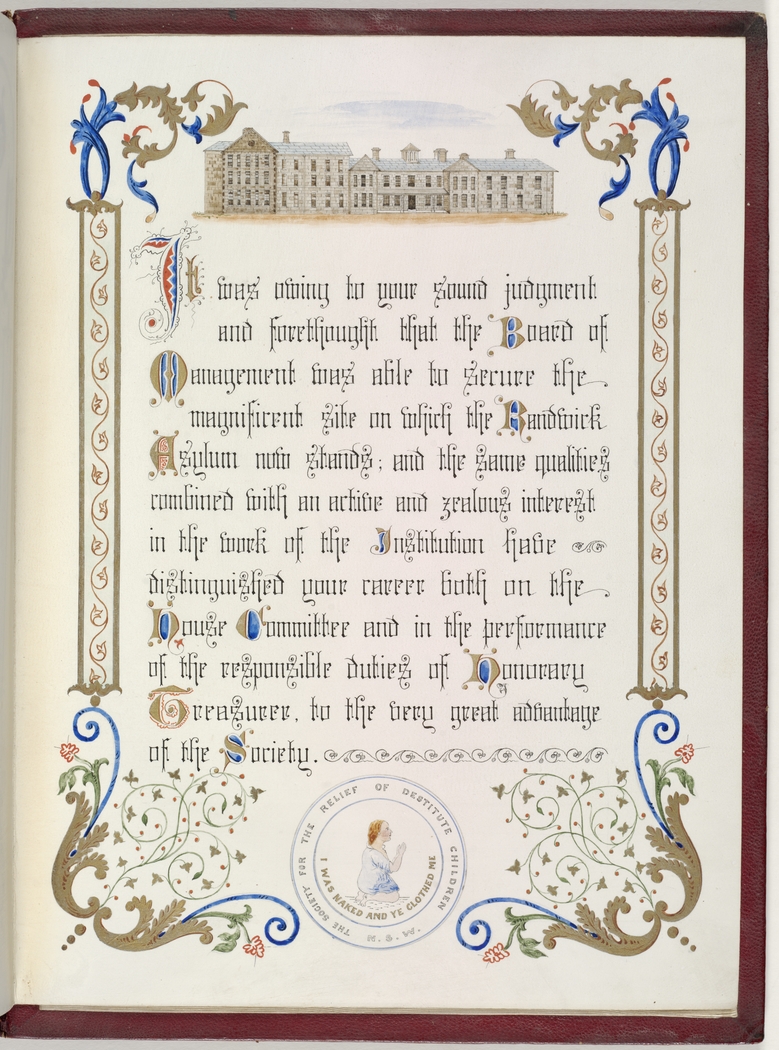 It was owing to your sound judgment
and forethought that the Board of
Management was able to secure the
magnificent site on which the Randwick
Asylum now stands; and the same qualities
combined with an active and zealous interest
in the work of the Institution have
distinguished your career both on the
House Committee and in the performance
of the responsible duties of Honorary
Treasurer, to the very great advantage
of the Society.
THE SOCIETY FOR THE RELIEF OF DESTITUTE CHILDREN
I WAS NAKED AND YE CLOTHED ME
N. S. W.